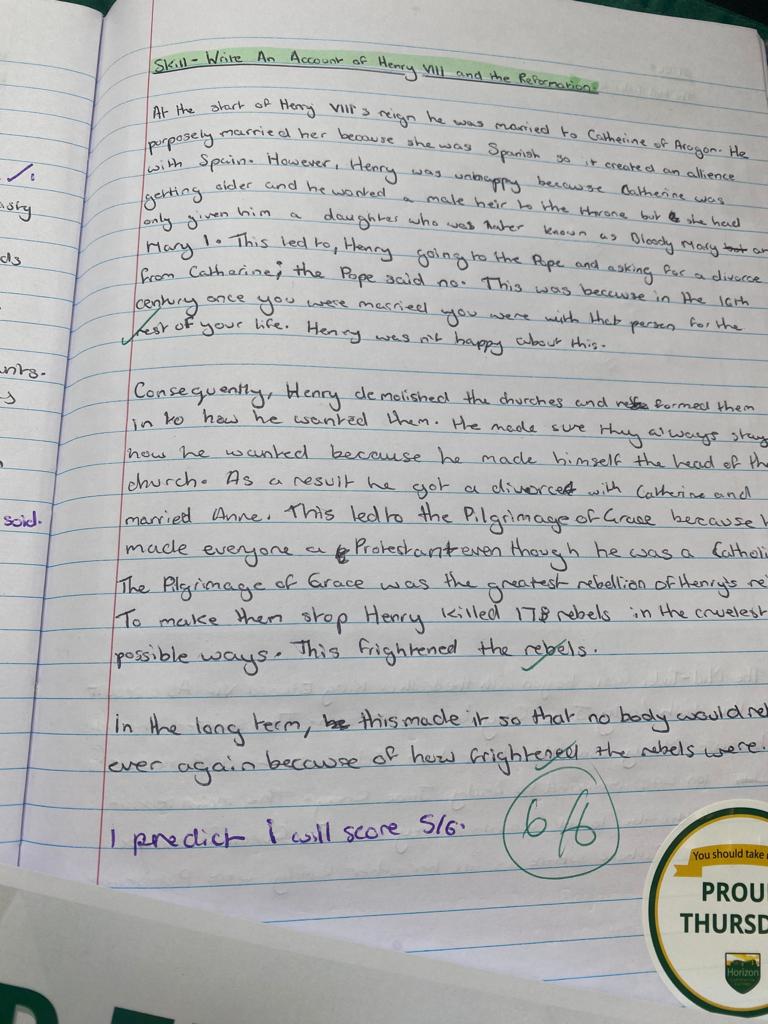 Skill - Write An Account of Henry VIII and the Reformation
At the start of Henry VIII's reign he was married to Catherine of Aragon. He
purposely married her because she was Spanish so it created an allience
with Spain. However, Henry was unhappy because Catherine was
getting older and he wanted a male heir to the throne but she had
only given him a daughter who was later known as Bloody Mary or
Mary 1. This led to, Henry going to the Pope and asking for a divorce
from Catherine; the Pope said no. This was because in the 16th
century once you were married you were with that person for the
rest of your life. Henry was not happy about this.
Consequently, Henry demolished the churches and reformed them
in to how he wanted them. He made sure they always stay
how he wanted because he made himself the head of the
church. As a result he got a divorced with Catherine and
married Anne. This led to the Pilgrimage of Grace because h
made everyone a Protestant even though he was a Catholi
The Pilgrimage of Grace was the greatest rebellion of Henry's rei
To make them stop Henry killed 178 rebels in the cruelest
possible ways. This frightened the rebels.
in the long term, this made it so that no body would rel
ever again because of how frightened the rebels were.
I predict i will score 5/6.
6/6
said.
nts.
ds
You should take
PROU
THURSD
Horizon